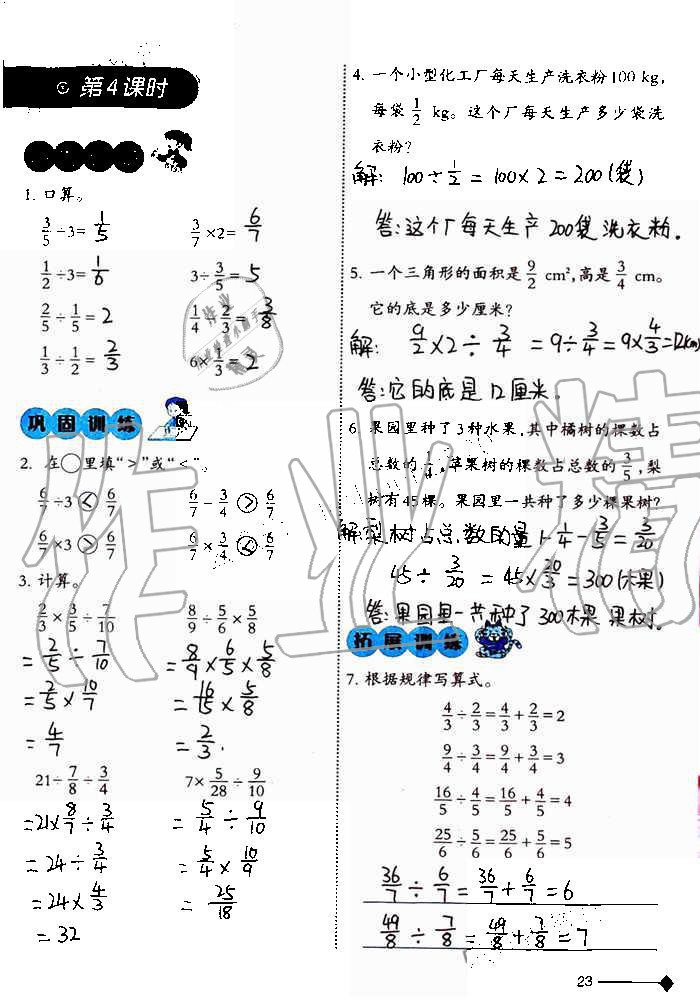 第4课时
1. 口算。
3/5÷3= 1/5 3/7×2= 6/7
1/2÷3= 1/6 3÷3/5= 5
2/5÷1/5= 2 1/4÷2/3= 3/8
1/3÷1/2= 2/3 6×1/3= 2
巩固训练
2. 在○里填“>”或“<”。
6/7÷3 < 6/7 6/7÷3/4 > 6/7
6/7×3 > 6/7 6/7×3/4 < 6/7
3. 计算。
2/3×3/5÷7/10 8/9÷5/6×5/8
=2/5÷7/10 =8/9×6/5×5/8
=2/5×10/7 =16/15×5/8
=4/7 =2/3.
21÷7/8÷3/4 7×5/28÷9/10
=21×8/7÷3/4 =5/4÷9/10
=24÷3/4 =5/4×10/9
=24×4/3 =25/18
=32
4. 一个小型化工厂每天生产洗衣粉100 kg,
每袋1/2 kg。这个厂每天生产多少袋洗
衣粉?
解: 100÷1/2=100×2=200(袋)
答:这个厂每天生产200袋洗衣粉.
5. 一个三角形的面积是9/2 cm²,高是3/4 cm。
它的底是多少厘米?
解: 9/2×2÷3/4=9÷3/4=9×4/3=12(cm)
答:它的底是12厘米.
6. 果园里种了3种水果,其中橘树的棵数占
总数的1/4,苹果树的棵数占总数的3/5,梨
树有45棵。果园里一共种了多少棵果树?
解:梨树占总数的量1-1/4-3/5=3/20
45÷3/20=45×20/3=300(木果)
答:果园里一共种了300木果 果树.
拓展训练
7. 根据规律写算式。
4/3÷2/3=4/3+2/3=2
9/4÷3/4=9/4+3/4=3
16/5÷4/5=16/5+4/5=4
25/6÷5/6=25/6+5/6=5
36/7÷6/7=36/7+6/7=6
49/8÷7/8=49/8+7/8=7
23
作业精